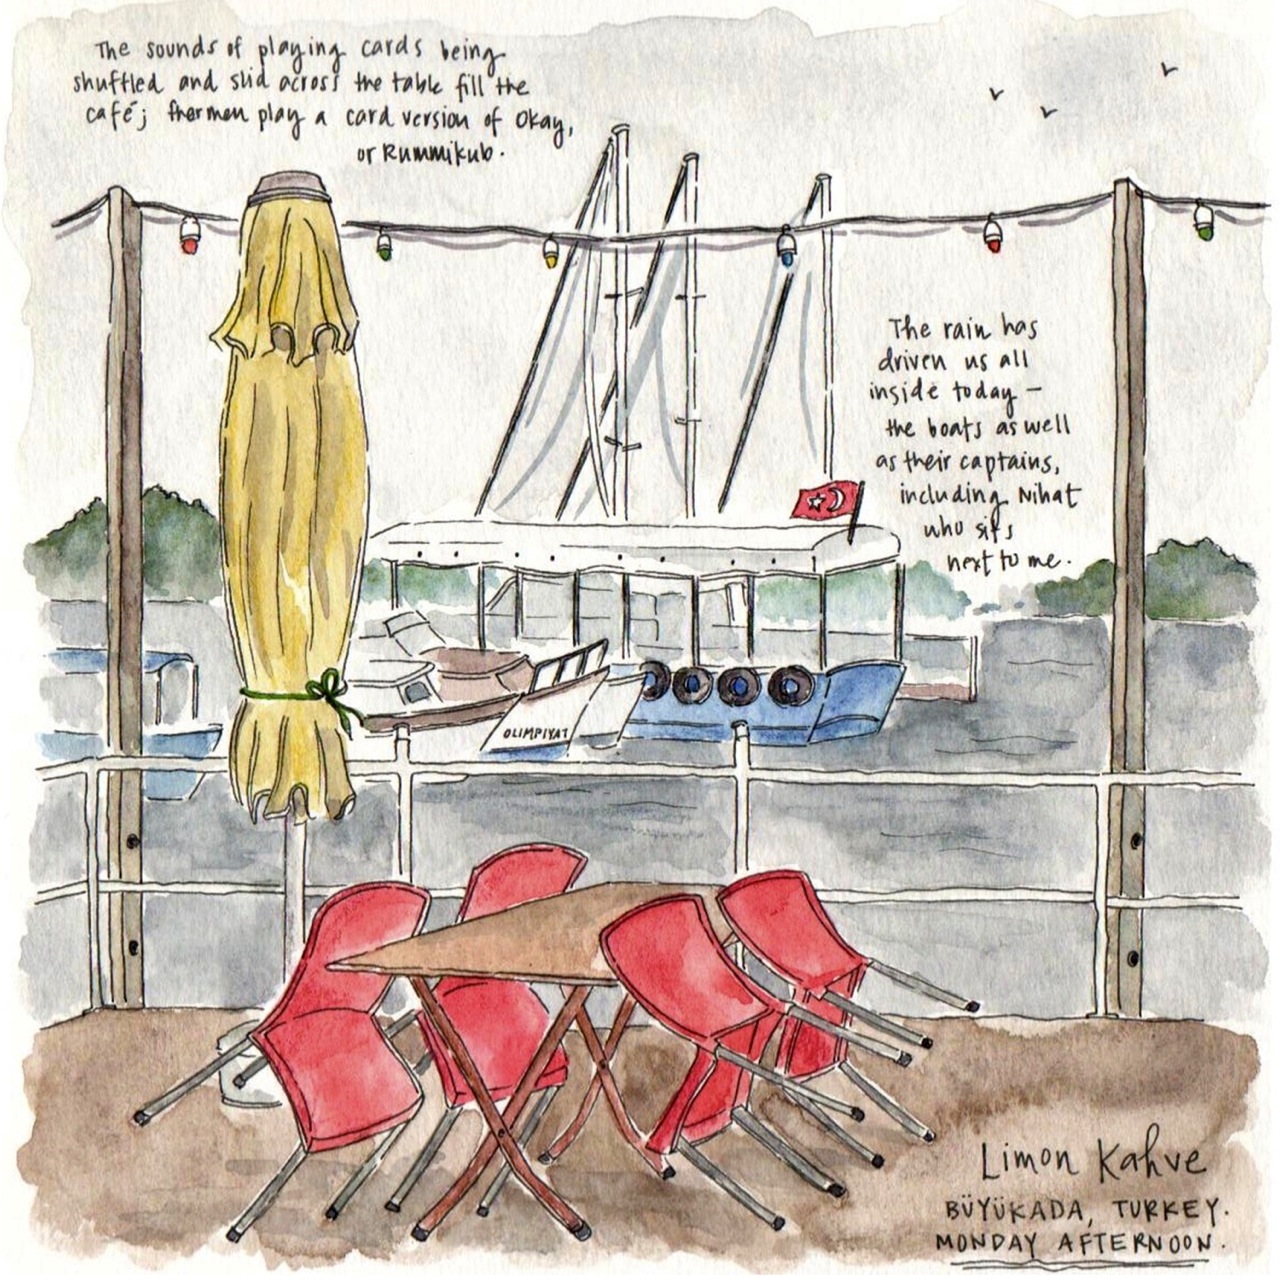 The sounds of playing cards being
shuffled and slid across the table fill the
café; fhermen play a card version of Okay,
or Rummikub.
The rain has
driven us all
inside today –
the boats as well
as their captains,
including Nihat
who sits
next to me.
OLIMPIYAT
Limon Kahve
BÜYÜKADA, TURKEY.
MONDAY AFTERNOON.